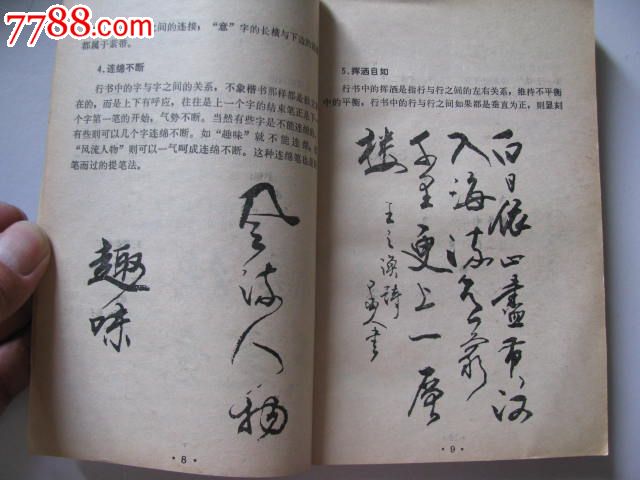 7788.com
之间的连接,“意”字的长横与下边的
都属于萦带。
4.连绵不断
行书中的字与字之间的关系,不象楷书那样都是独立
在的,而是上下有呼应,往往是上一个字的结束笔正是下
个字第一笔的开始,气势不断。当然有些字是不能连绵的,
有些则可以几个字连绵不断。如“趣味”就不能连绵,
“风流人物”则可以一气呵成连绵不断。这种连绵笔法
笔而过的提笔法。
风流人物
趣味
·8·
5.挥洒自如
行书中的挥洒是指行与行之间的左右关系,维持不平衡
中的平衡,行书中的行与行之间如果都是垂直为正,则显刻
白日依山尽黄河
入海流欲穷
千里更上一层
楼
王之涣诗
人书
·9·